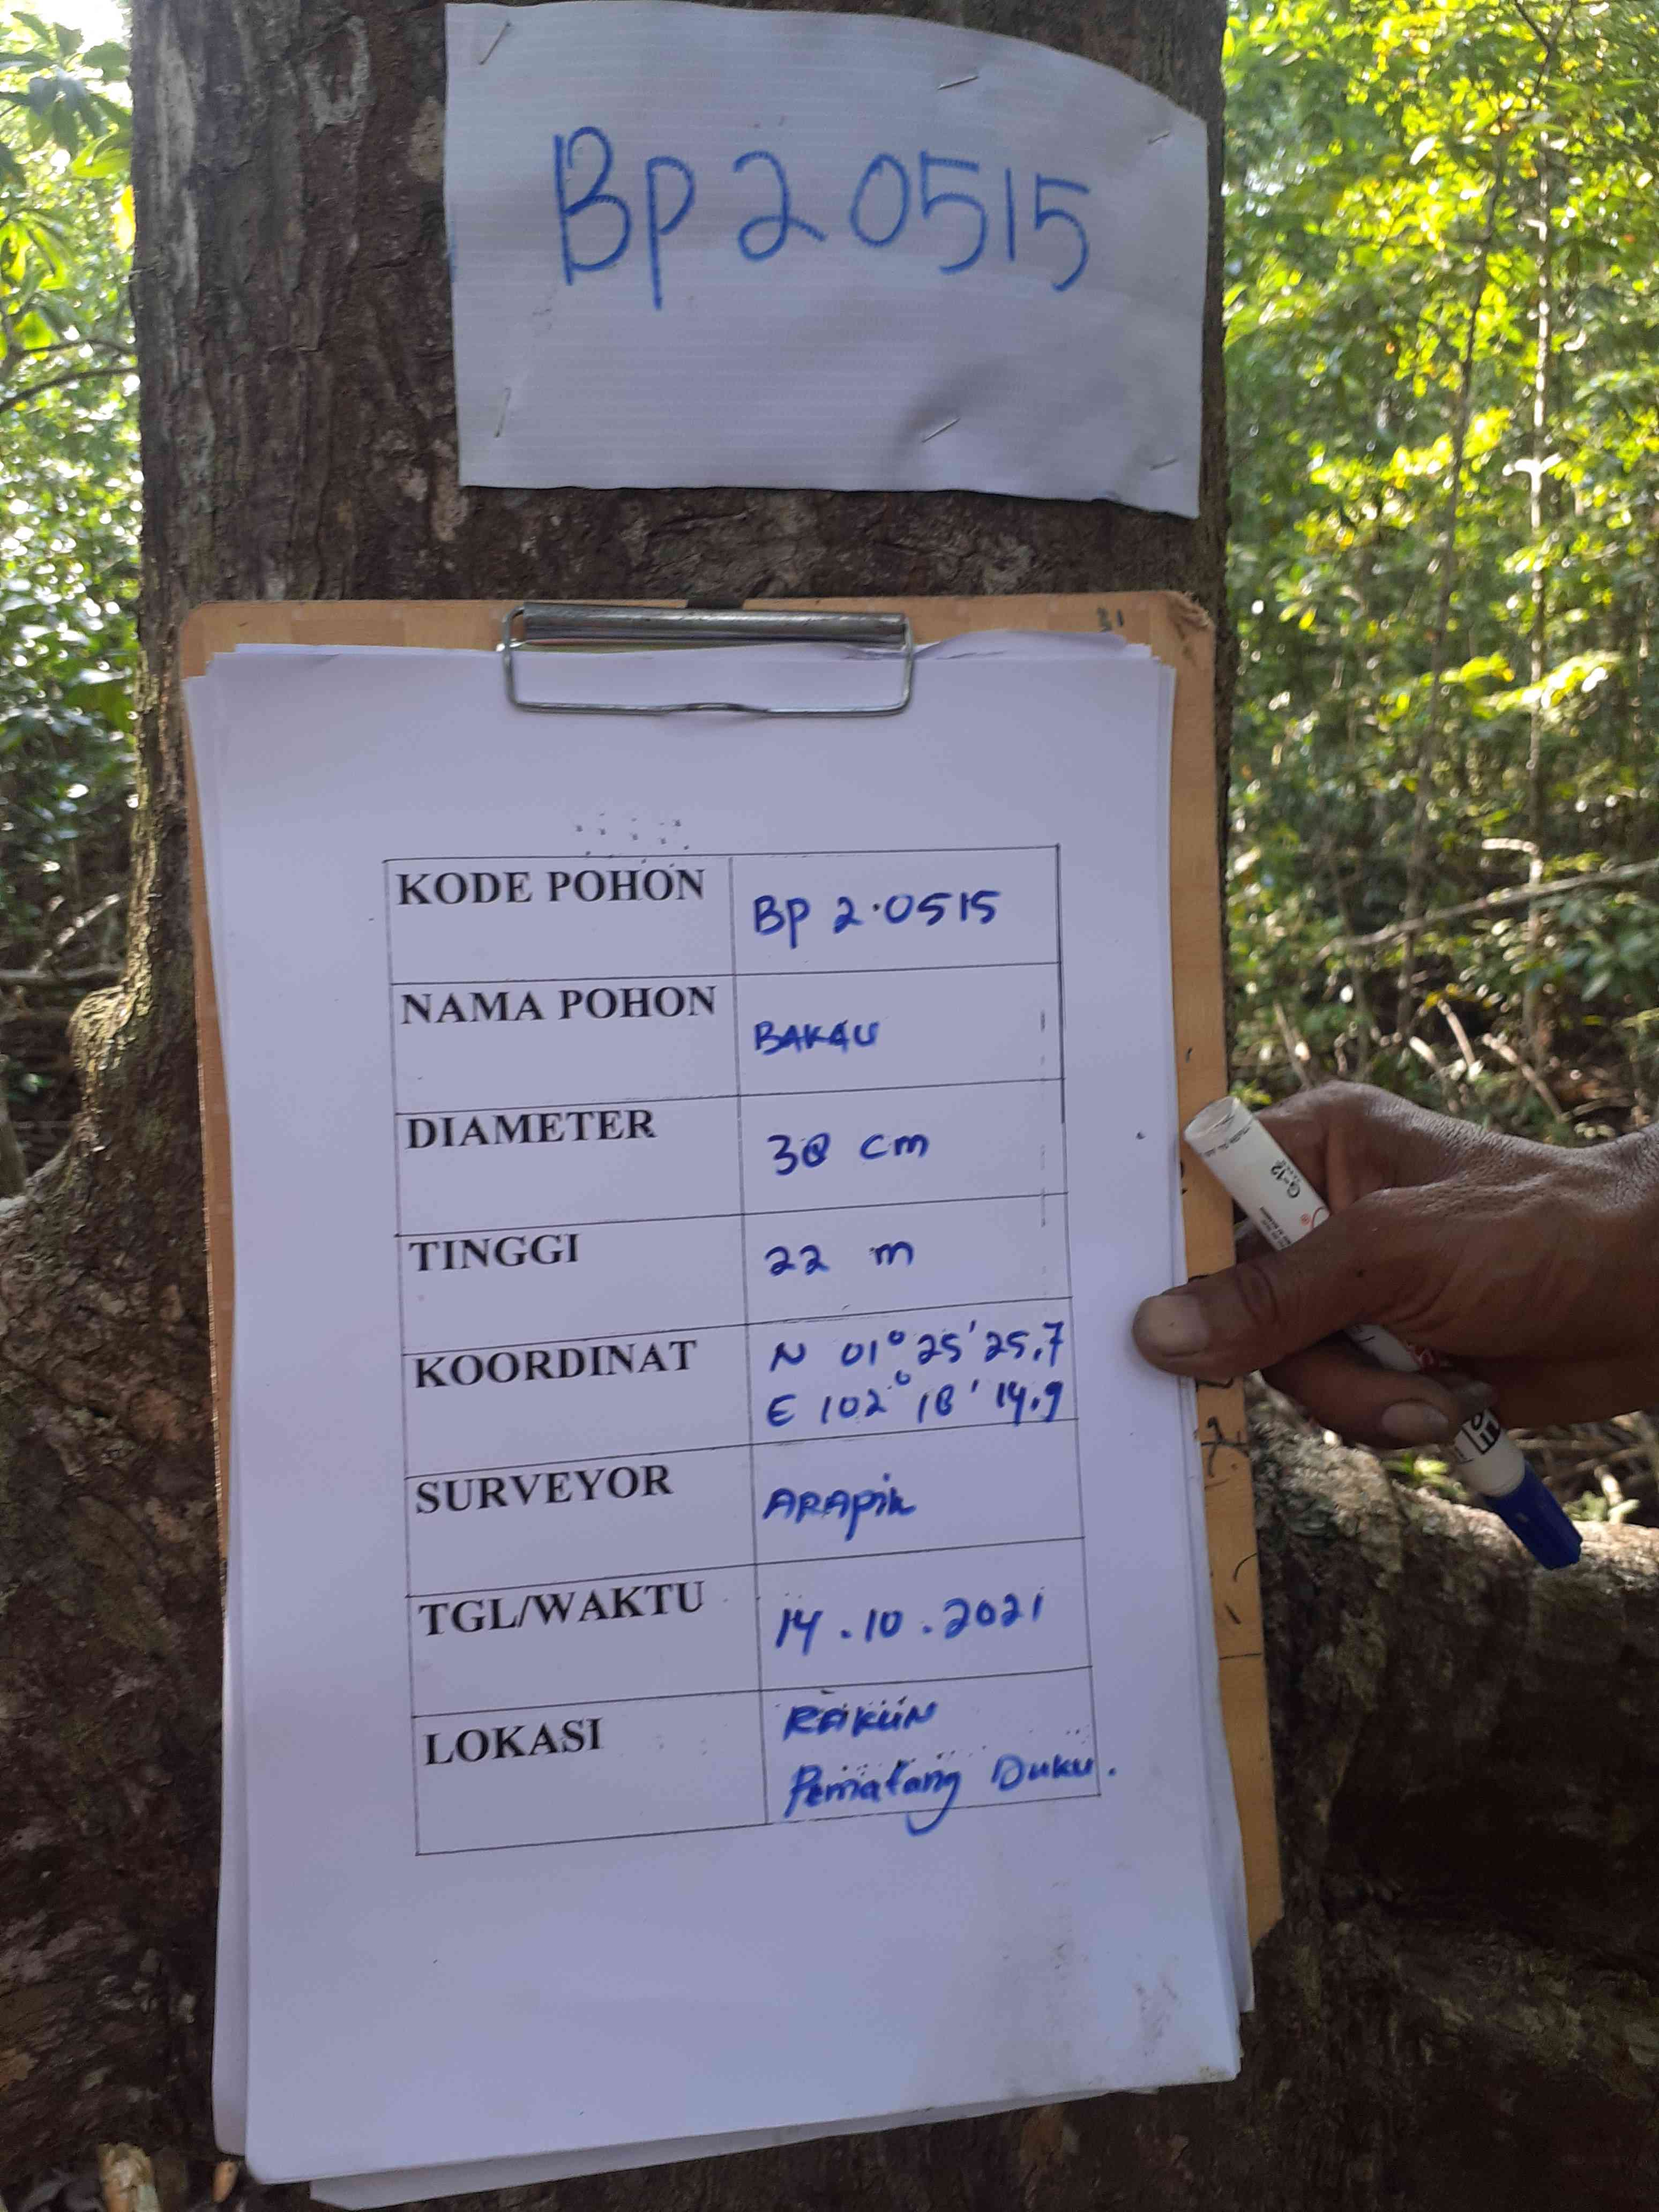 Bp 2 0515
KODE POHON Bp 2.0515
NAMA POHON BAKAU
DIAMETER cm
TINGGI 22 m
KOORDINAT N 01° 25' 25,7
E 102° 18' 14.9
SURVEYOR ARAPIK
TGL/WAKTU 14.10.2021
LOKASI
Pematang Duku.
G-12